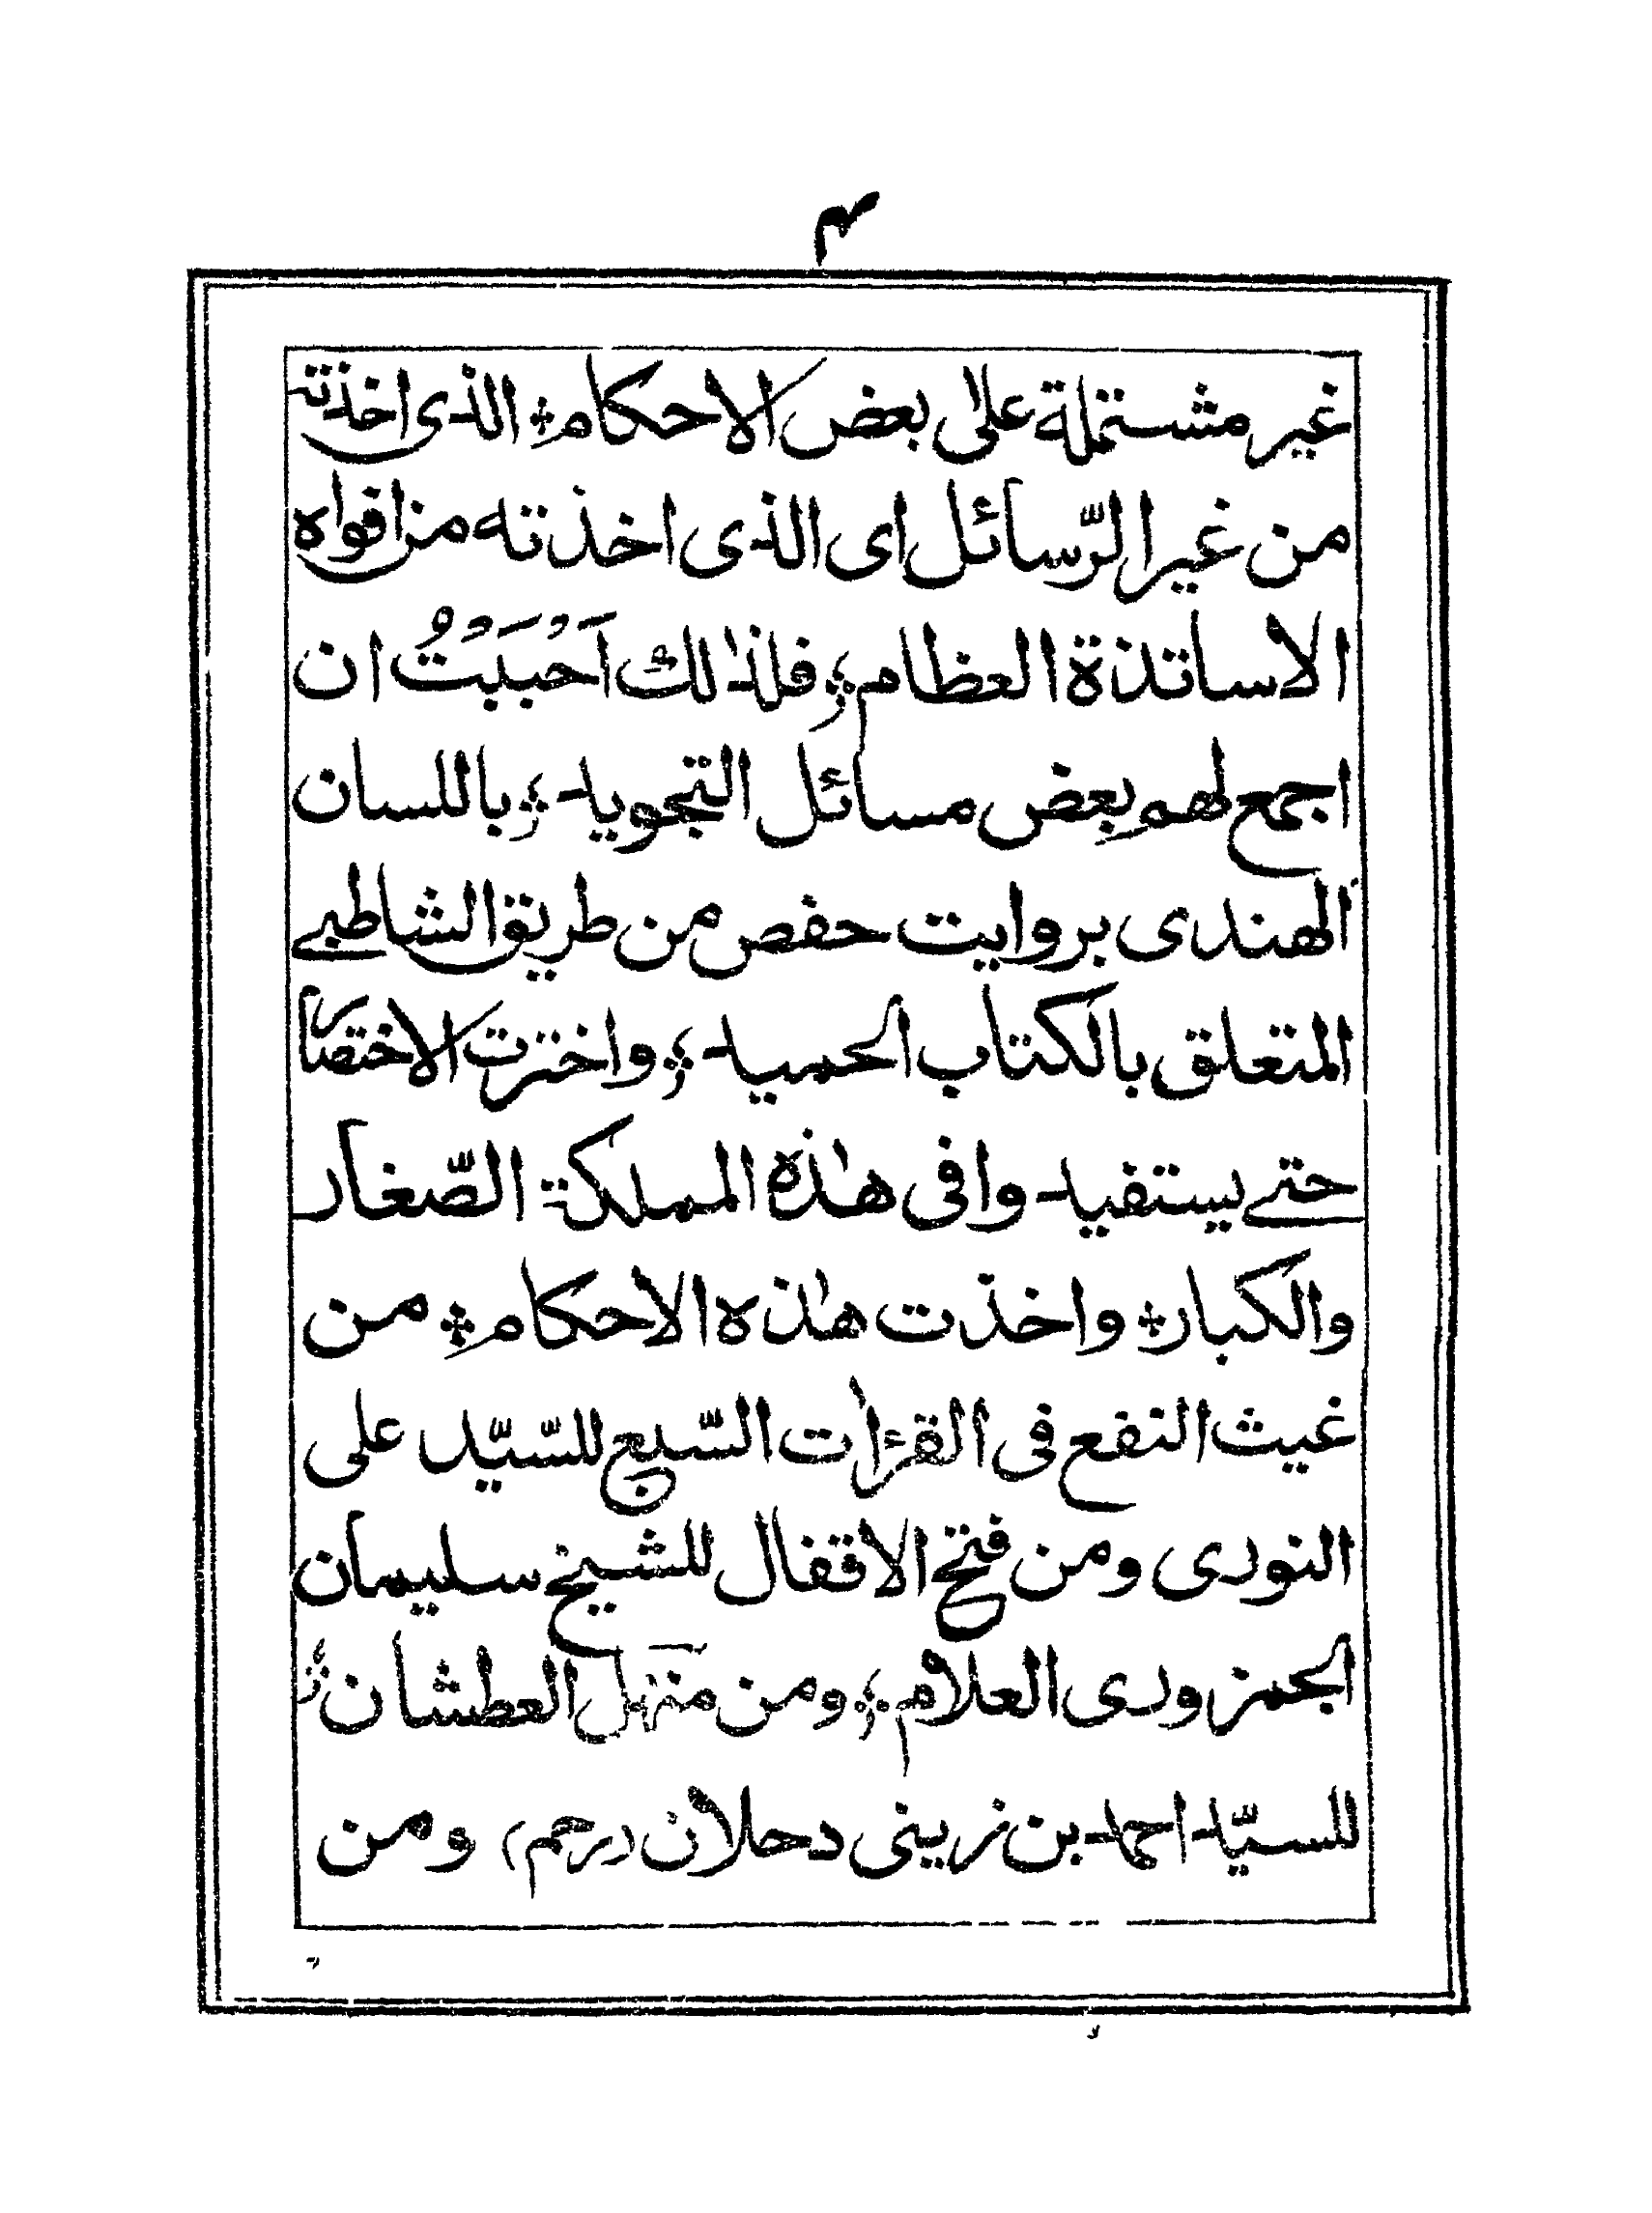 ٣
غير مشتملة على بعض الاحكام ۞ الذى اخذته
من غير الرّسائل اى الذى اخذته من افواه
الاساتذة العظام ؞ فلذٰلك اَحْبَبْتُ ان
اجمع لهم بعض مسائل التجويد ؞ باللسان
الهندى بروايت حفص من طريق الشاطبے
المتعلق بالكتاب الحميد ؞ واخترت الاختصار
حتے يستفيد وا فى هٰذه المملكة الصّغار
والكبار ۞ واخذت هٰذه الاحكام ۞ من
غيث النفع فى القرءٰات السّبع للسّيّد على
النورى ومن فتح الاقفال للشيخ سليمان
الجمزورى العلام ؞ ومن منهل العطشان ؞
للسيّد احمد بن زينى دحلان (رحمه) ومن